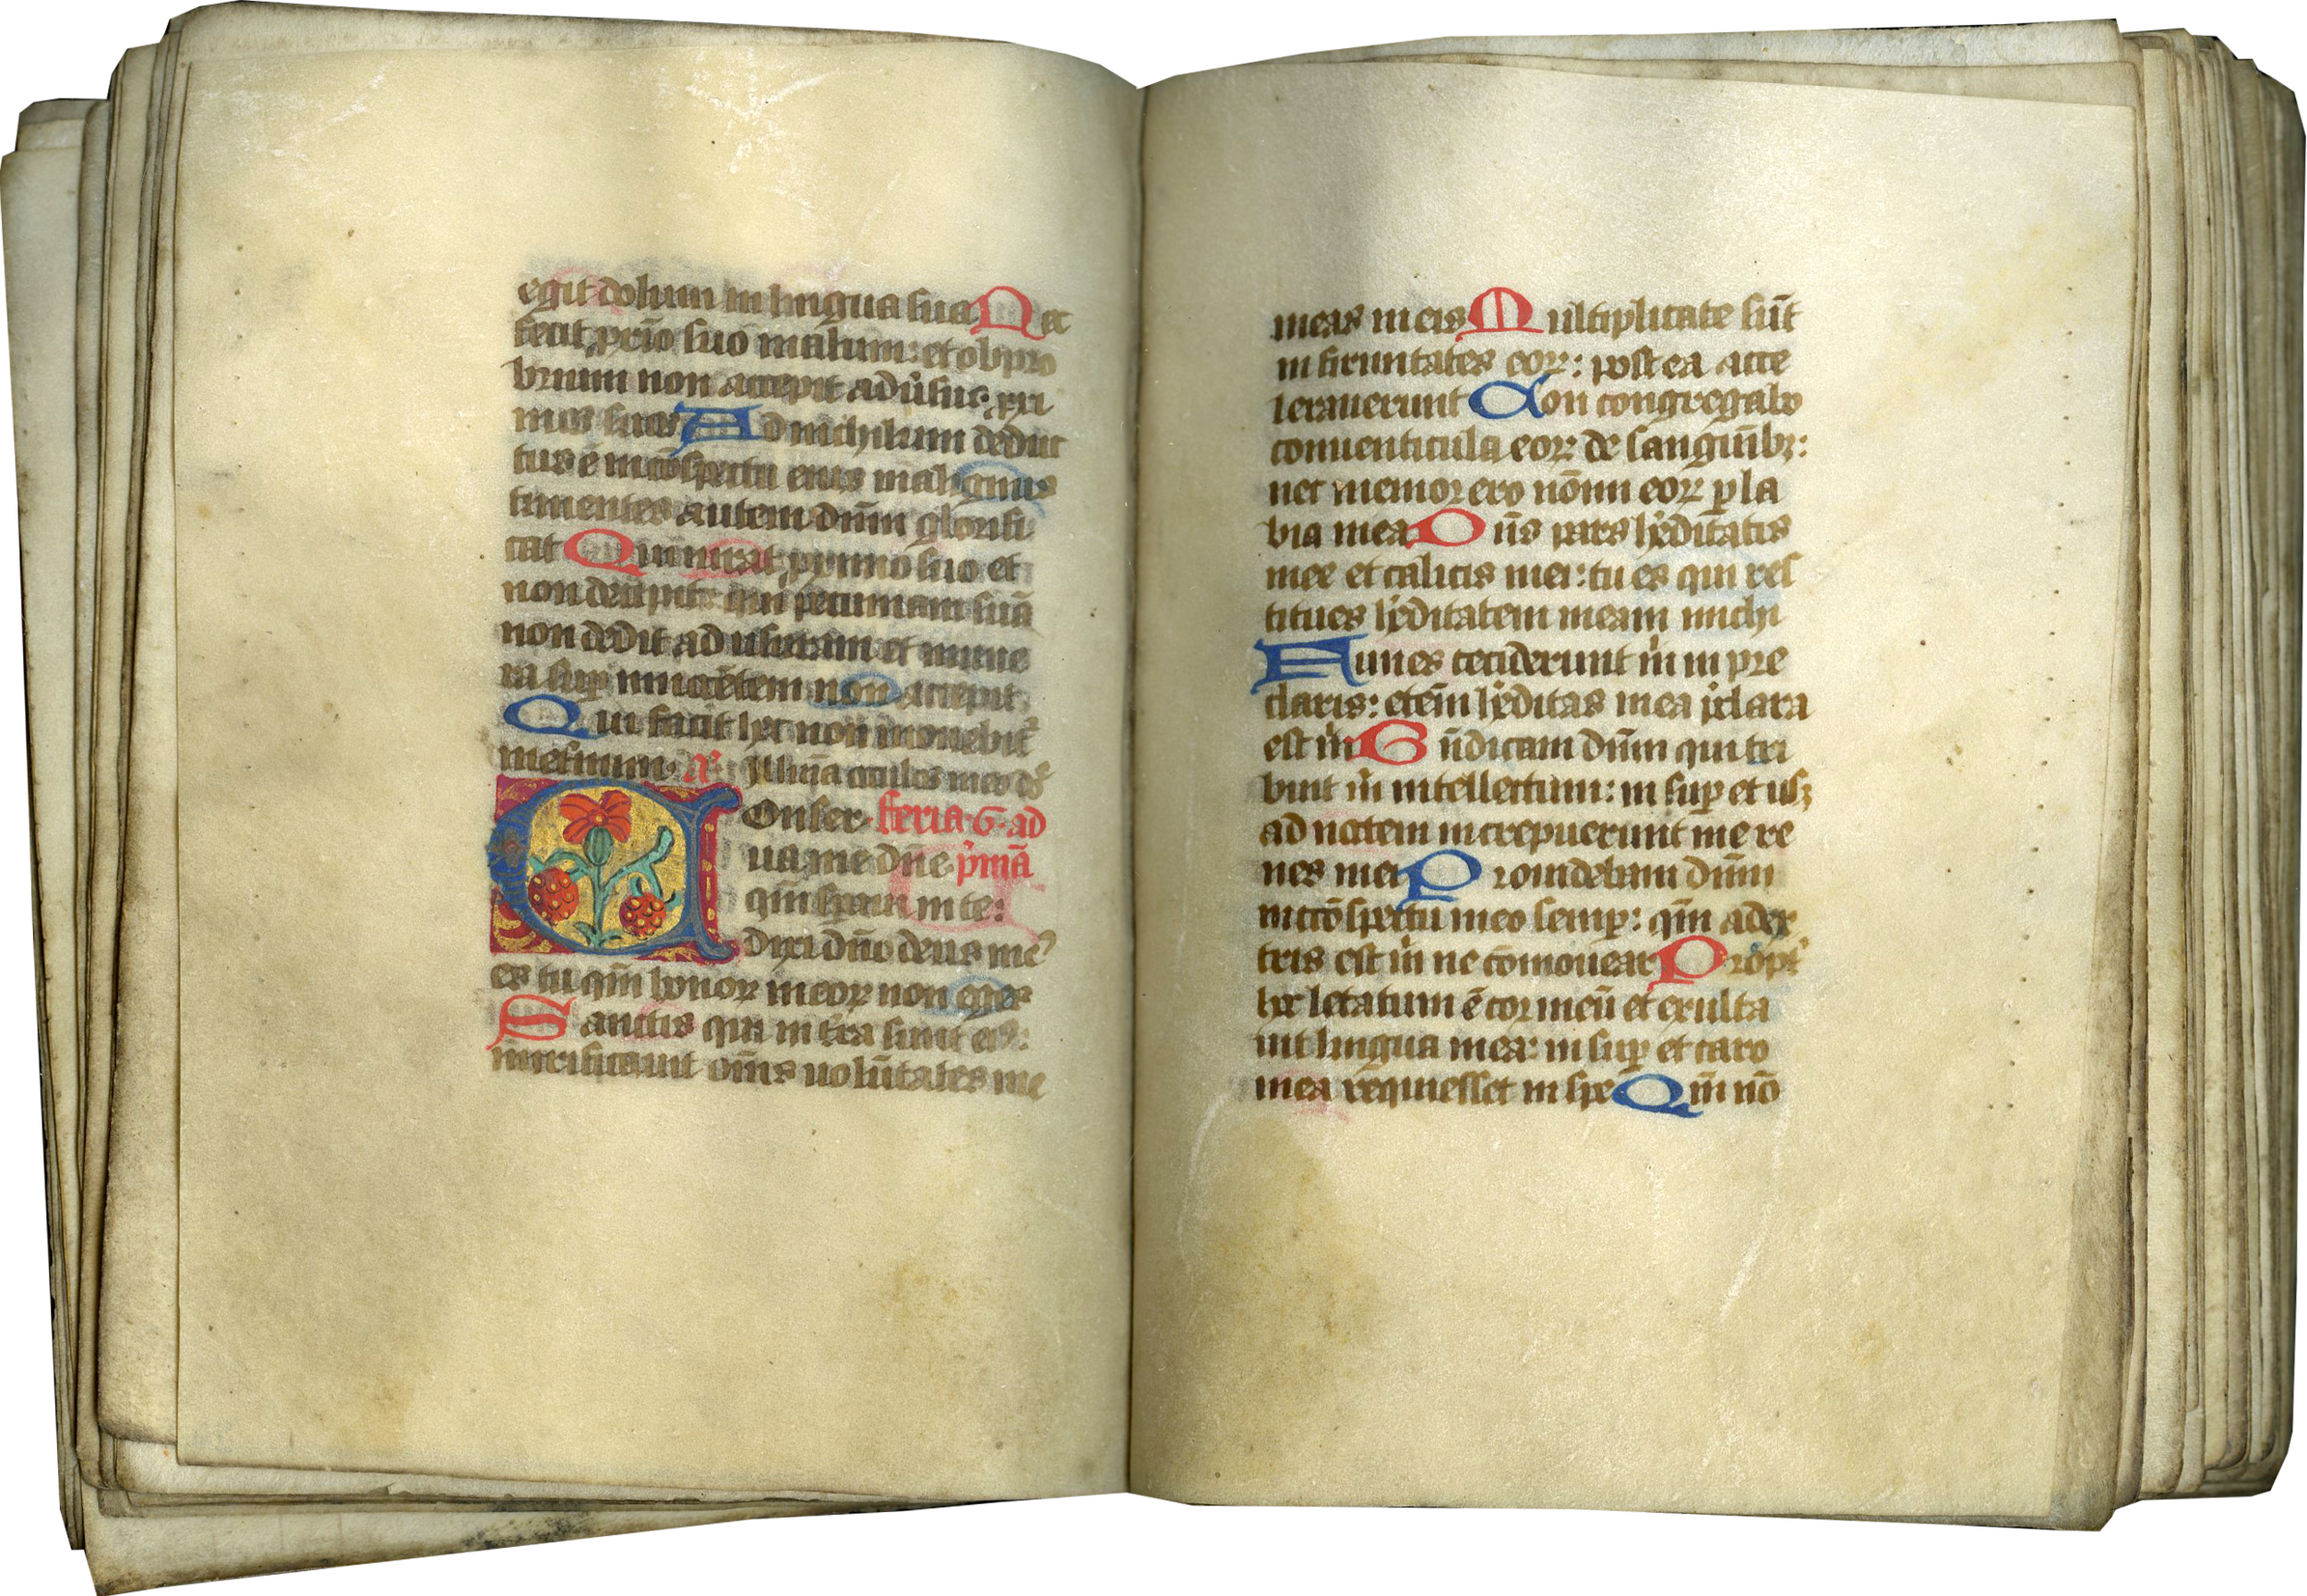 egit dolum in lingua sua Nec
fecit p̱rio suo malum: et obpro
brium non accepit adu̾sus p̱xi
mos suos Ad nichilum deduc
tus ē in cōspectu eius malignus
timentes autem dn̄m glorifi
cat Qui iurat p̱ximo suo et
non decipit: qui pecuniam suā
non dedit ad usuram et mune
ra sup̱ innocētem non accepit
Qui facit hec non mouebit̾
Illūīa oculos meos
Onser feria·6·ad
ua me dn̄e p̾mā
qm̄ speraui in te:
dixi dn̄o deus me
es tu qm̄ bonoꝝ meoꝝ non eges
Sanctis qui in t̾ra sunt eiꝰ:
mirificauit om̄s uolūtates me
meas in eis Multiplicate sūt
infirmitates eoꝝ: postea acce
lerauerunt Non congregabo
conuenticula eoꝝ de sanguībꝫ:
nec memor ero nōmi eoꝝ p̱ la
bia mea Dn̄s pars he̾ditatis
mee et calicis mei: tu es qui res
titues he̾ditatem meam michi
Funes ceciderunt m̄ in pre
claris: eten̄i he̾ditas mea p̾clara
est m̄ Bn̄dicam dn̄m qui tri
buit m̄ intellectum: insup̱ et usqꝫ
ad noctem increpuerunt me re
nes mei Prouidebam dn̄m
in cōspectu meo semp̱: qm̄ a dex
tris est m̄ ne cōmouear Propt̾
hec letatum ē cor meū et exulta
uit lingua mea: insup̱ et caro
mea requiesset in spe Qm̄ nō